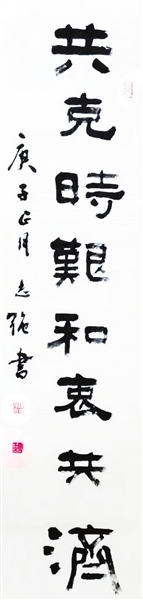 共克時艱和衷共濟
庚子正月志強書